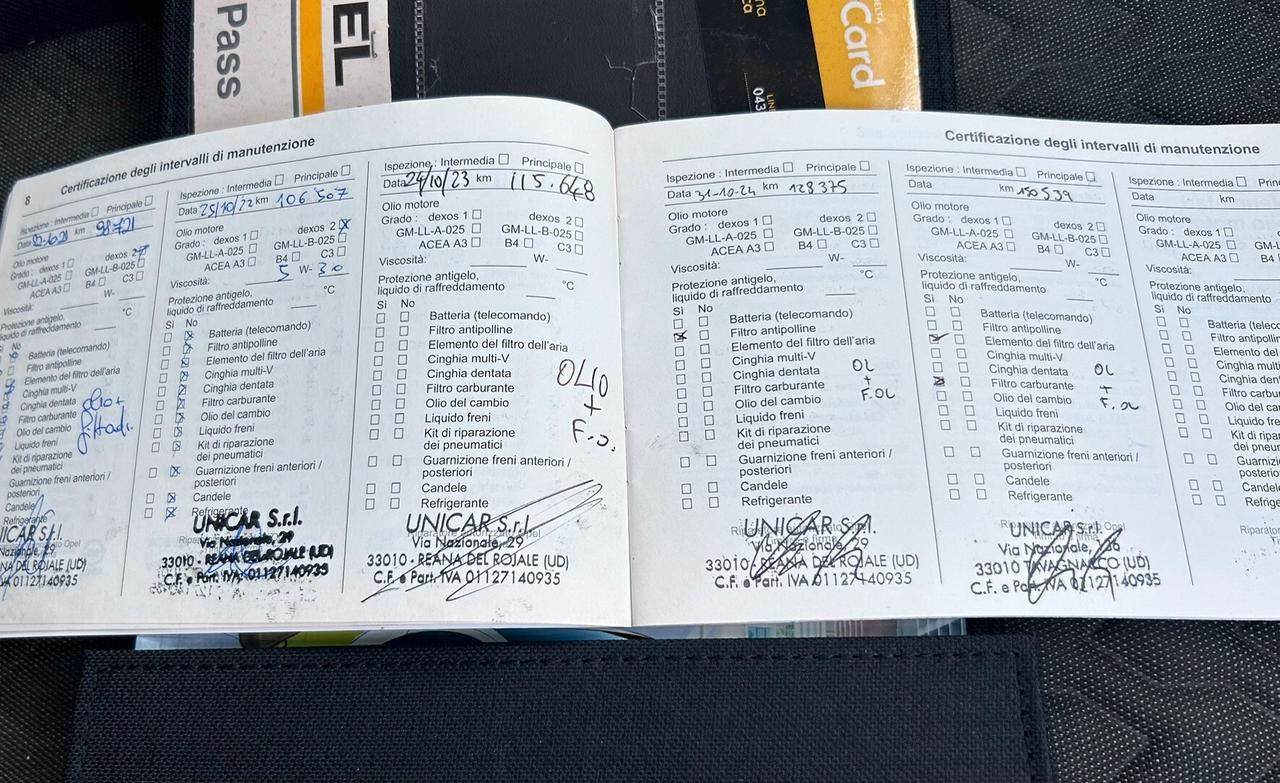 Pass
EL
Card
043
8
Certificazione degli intervalli di manutenzione
Ispezione : Intermedia Principale
Data km 98721
Olio motore
Grado : dexos 1 dexos 2
GM-LL-A-025 GM-LL-B-025
ACEA A3 B4 C3
Viscosità: W-
Protezione antigelo,
liquido di raffreddamento °C
No
Batteria (telecomando)
Filtro antipolline
Elemento del filtro dell'aria
Cinghia multi-V
Cinghia dentata
Filtro carburante
Olio del cambio
Liquido freni
Kit di riparazione
dei pneumatici
Guarnizione freni anteriori /
posteriori
Candele
Refrigerante
Nazionale, 29
C.F. e Part. IVA 01127140935
Ispezione : Intermedia Principale
Data 25/10/22 km 106 507
Olio motore
Grado : dexos 1 dexos 2 x
GM-LL-A-025 GM-LL-B-025
ACEA A3 B4 C3
Viscosità: 5 W- 30
Protezione antigelo,
liquido di raffreddamento °C
Sì No
Batteria (telecomando)
Filtro antipolline
Elemento del filtro dell'aria
Cinghia multi-V
Cinghia dentata
Filtro carburante
Olio del cambio
Liquido freni
Kit di riparazione
dei pneumatici
Guarnizione freni anteriori /
posteriori
Candele
Refrigerante
UNICAR S.r.l.
Via Nazionale, 29
33010 - REANA DEL ROJALE (UD)
C.F. e Part. IVA: 01127140935
Ispezione : Intermedia Principale
Data 24/10/23 km 115.648
Olio motore
Grado : dexos 1 dexos 2
GM-LL-A-025 GM-LL-B-025
ACEA A3 B4 C3
Viscosità: W-
Protezione antigelo,
liquido di raffreddamento °C
Sì No
Batteria (telecomando)
Filtro antipolline
Elemento del filtro dell'aria
Cinghia multi-V
Cinghia dentata OLIO
Filtro carburante +
Olio del cambio
Liquido freni F.O.
Kit di riparazione
dei pneumatici
Guarnizione freni anteriori /
posteriori
Candele
Refrigerante
UNICAR S.r.l.
Via Nazionale, 29
33010 - REANA DEL ROJALE (UD)
C.F. e Part. IVA 01127140935
Certificazione degli intervalli di manutenzione
Ispezione : Intermedia Principale
Data 31-10-24 km 128375
Olio motore
Grado : dexos 1 dexos 2
GM-LL-A-025 GM-LL-B-025
ACEA A3 B4 C3
Viscosità: W-
Protezione antigelo,
liquido di raffreddamento °C
Sì No
Batteria (telecomando)
Filtro antipolline
Elemento del filtro dell'aria
Cinghia multi-V
Cinghia dentata OL
Filtro carburante +
Olio del cambio F.OL
Liquido freni
Kit di riparazione
dei pneumatici
Guarnizione freni anteriori /
posteriori
Candele
Refrigerante
UNICAR S.r.l.
Via Nazionale, 29
33010 - REANA DEL ROJALE (UD)
C.F. e Part. IVA 01127140935
Ispezione : Intermedia Principale
Data km 150539
Olio motore
Grado : dexos 1 dexos 2
GM-LL-A-025 GM-LL-B-025
ACEA A3 B4 C3
Viscosità: W-
Protezione antigelo,
liquido di raffreddamento °C
Sì No
Batteria (telecomando)
Filtro antipolline
Elemento del filtro dell'aria
Cinghia multi-V
Cinghia dentata OL
Filtro carburante +
Olio del cambio F.OL
Liquido freni
Kit di riparazione
dei pneumatici
Guarnizione freni anteriori /
posteriori
Candele
Refrigerante
UNICAR S.r.l.
Via Nazionale, 26
33010 TAVAGNACCO (UD)
C.F. e Part. IVA 01127140935
Ispezione : Intermedia Principale
Data km
Olio motore
Grado : dexos 1
GM-LL-A-025 GM-L
ACEA A3 B4
Viscosità:
Protezione antigelo,
liquido di raffreddamento
Sì No
Batteria (teleco
Filtro antipollin
Elemento del
Cinghia multi
Cinghia den
Filtro carbu
Olio del ca
Liquido fre
Kit di ripa
dei pneum
Guarnizio
posterior
Candele
Refriger
Riparator